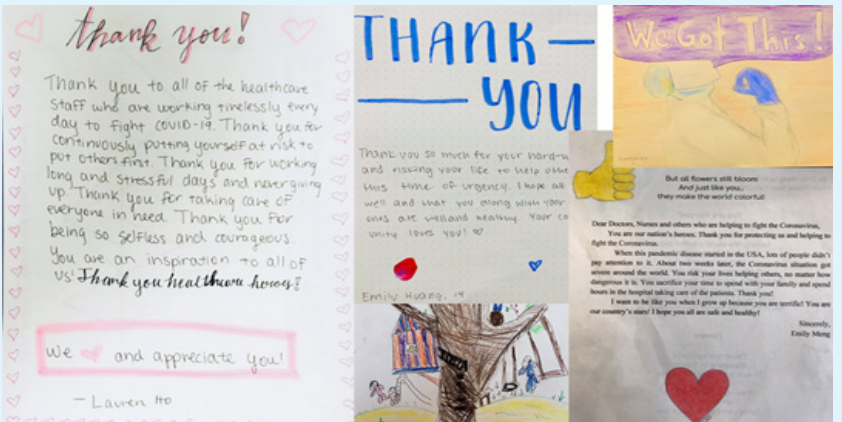 thank you!
Thank you to all of the healthcare
staff who are working tirelessly every
day to fight COVID-19. Thank you for
continuously putting yourself at risk to
put others first. Thank you for working
long and stressful days and never giving
up. Thank you for taking care of
everyone in need. Thank you for
being so selfless and courageous
you are an inspiration to all of
us! Thank you healthcare heroes!
we and appreciate you!
- Lauren Ho
THANK —
— YOU
Thank you so much for your hard-w
and risking your life to help othe
this time of urgency. I hope all
well and that you along with your
ones are well and healthy. Your co
unity loves you!
Emily Huang, 14
We Got This!
But all flowers still bloom
And just like you..
they make the world colorful!
Dear Doctors, Nurses and others who are helping to fight the Coronavirus,
You are our nation's heroes. Thank you for protecting us and helping to
fight the Coronavirus.
When this pandemic disease started in the USA, lots of people didn't
pay attention to it. About two weeks later, the Coronavirus situation got
severe around the world. You risk your lives helping others, no matter how
dangerous it is. You sacrifice your time to spend with your family and spend
hours in the hospital taking care of the patients. Thank you!
I want to be like you when I grow up because you are terrific! You are
our country's stars! I hope you all are safe and healthy!
Sincerely,
Emily Meng